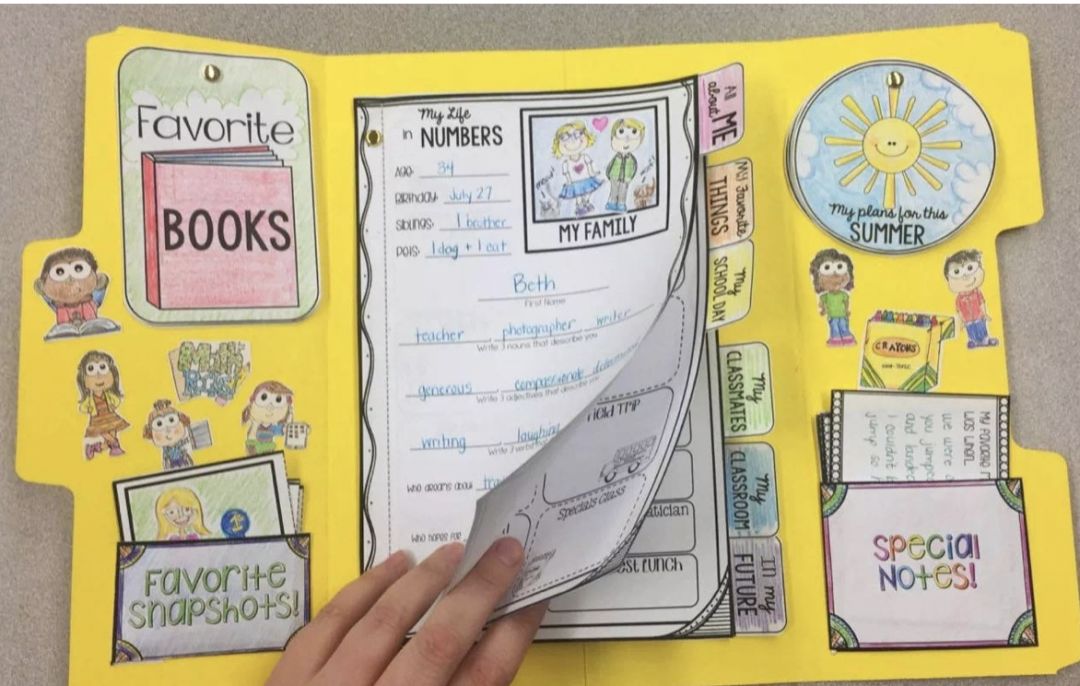 Favorite
BOOKS
Favorite
snapshots!
My Life
in NUMBERS
AGE: 34
BIRTHDAY: July 27
SIBLINGS: 1 brother
PETS: 1 dog + 1 cat
MY FAMILY
Beth
First Name
teacher, photographer, writer
Write 3 nouns that describe you
generous, compassionate,
Write 3 adjectives that describe you
writing, laughing
Write 3
who dreams about
who hopes for
Field Trip
Specials Class
st Lunch
All
about ME
My Favorite
THINGS
My
SCHOOL DAY
My
CLASSMATES
My
CLASSROOM
In my
FUTURE
My plans for this
SUMMER
CRAYONS
My favorite
was when
we were
you jumped
and landed
I couldn't
jump so
Special
Notes!